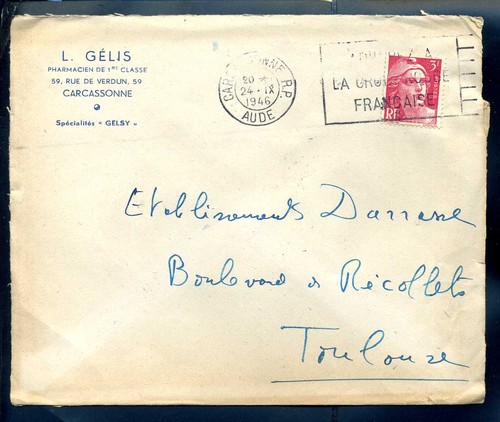 L. GÉLIS
PHARMACIEN DE 1RE CLASSE
59, RUE DE VERDUN, 59
CARCASSONNE
Spécialités "GELSY"
CARCASSONNE R.P.
20
24 - IX
1946
AUDE
A
LA CROIX ROUGE
FRANÇAISE
3F
RF
Etablissements Darrasse
Boulevard des Récollets
Toulouse